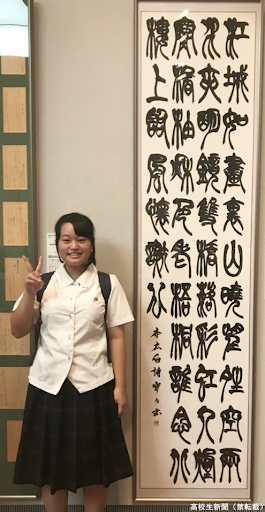 江城如畫裏山曉望晴空兩
水夾明鏡雙橋落彩虹人煙
寒橘柚秋色老梧桐誰念北
樓上臨風懷謝公
李太白詩
高校生新聞（禁転載）